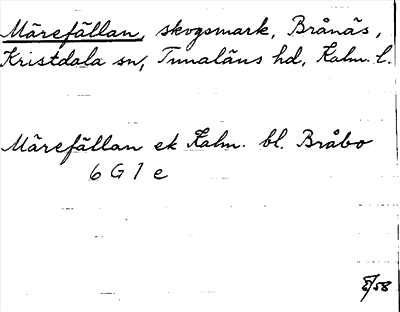 Märefällan, skogsmark, Brånäs,
Kristdala sn, Tunaläns hd, Kalm. l.
Märefällan ek Kalm. bl. Bråbo
6 G 1 e
E/58